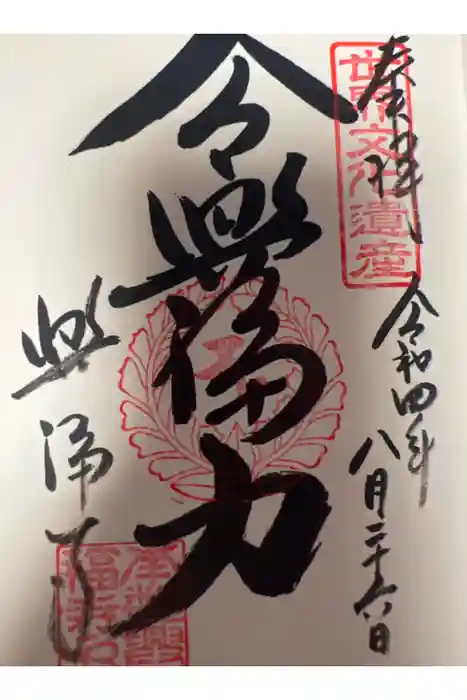 世界文化遺産
奉拝
令和四年
八月二十六日
令興福力
興福寺
南都興
福寺